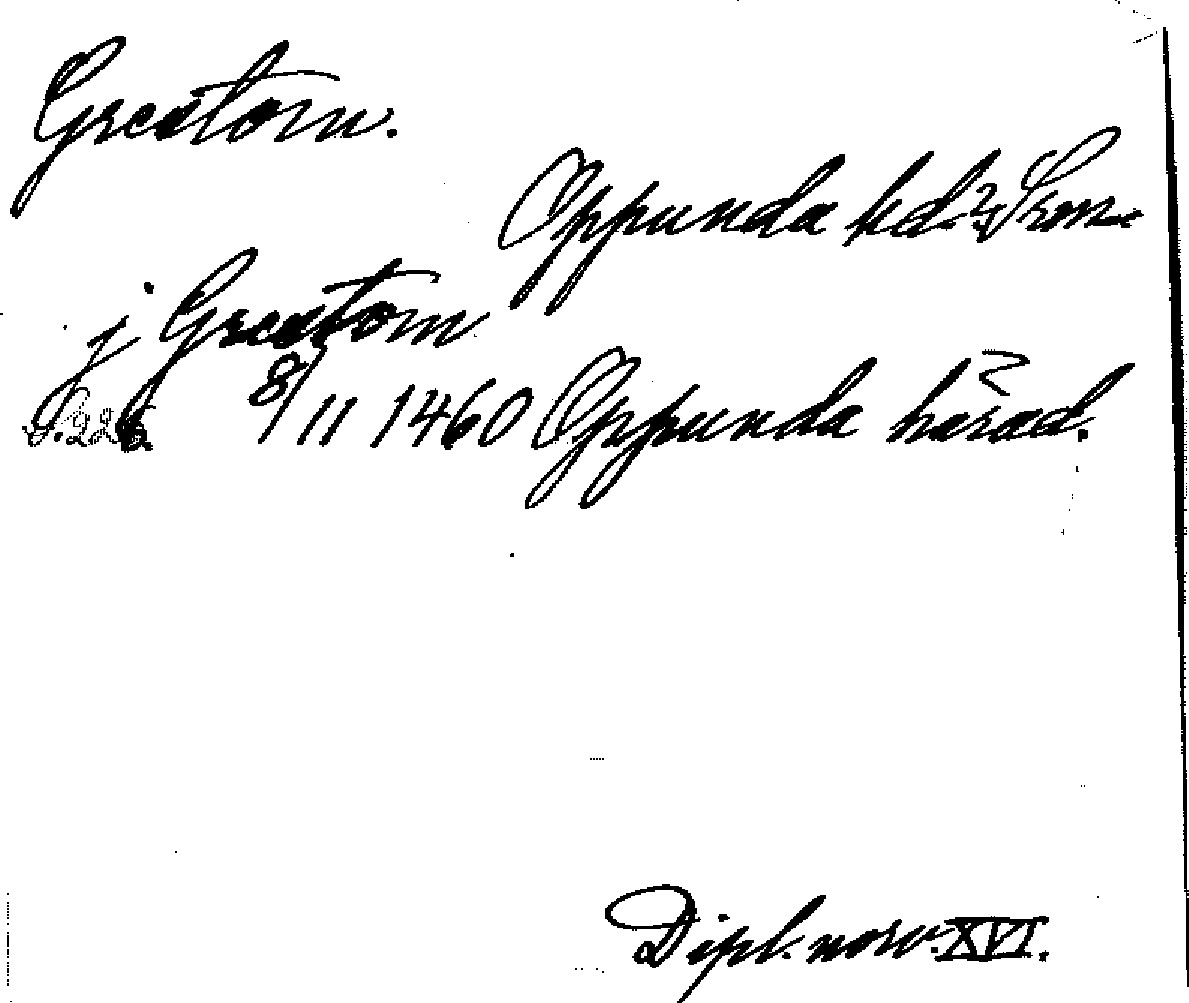 Grestom.
Oppunda hd? Srm.
j Grestom
s. 226 8/11 1460 Oppunda härad.
Dipl. norv. XVI.